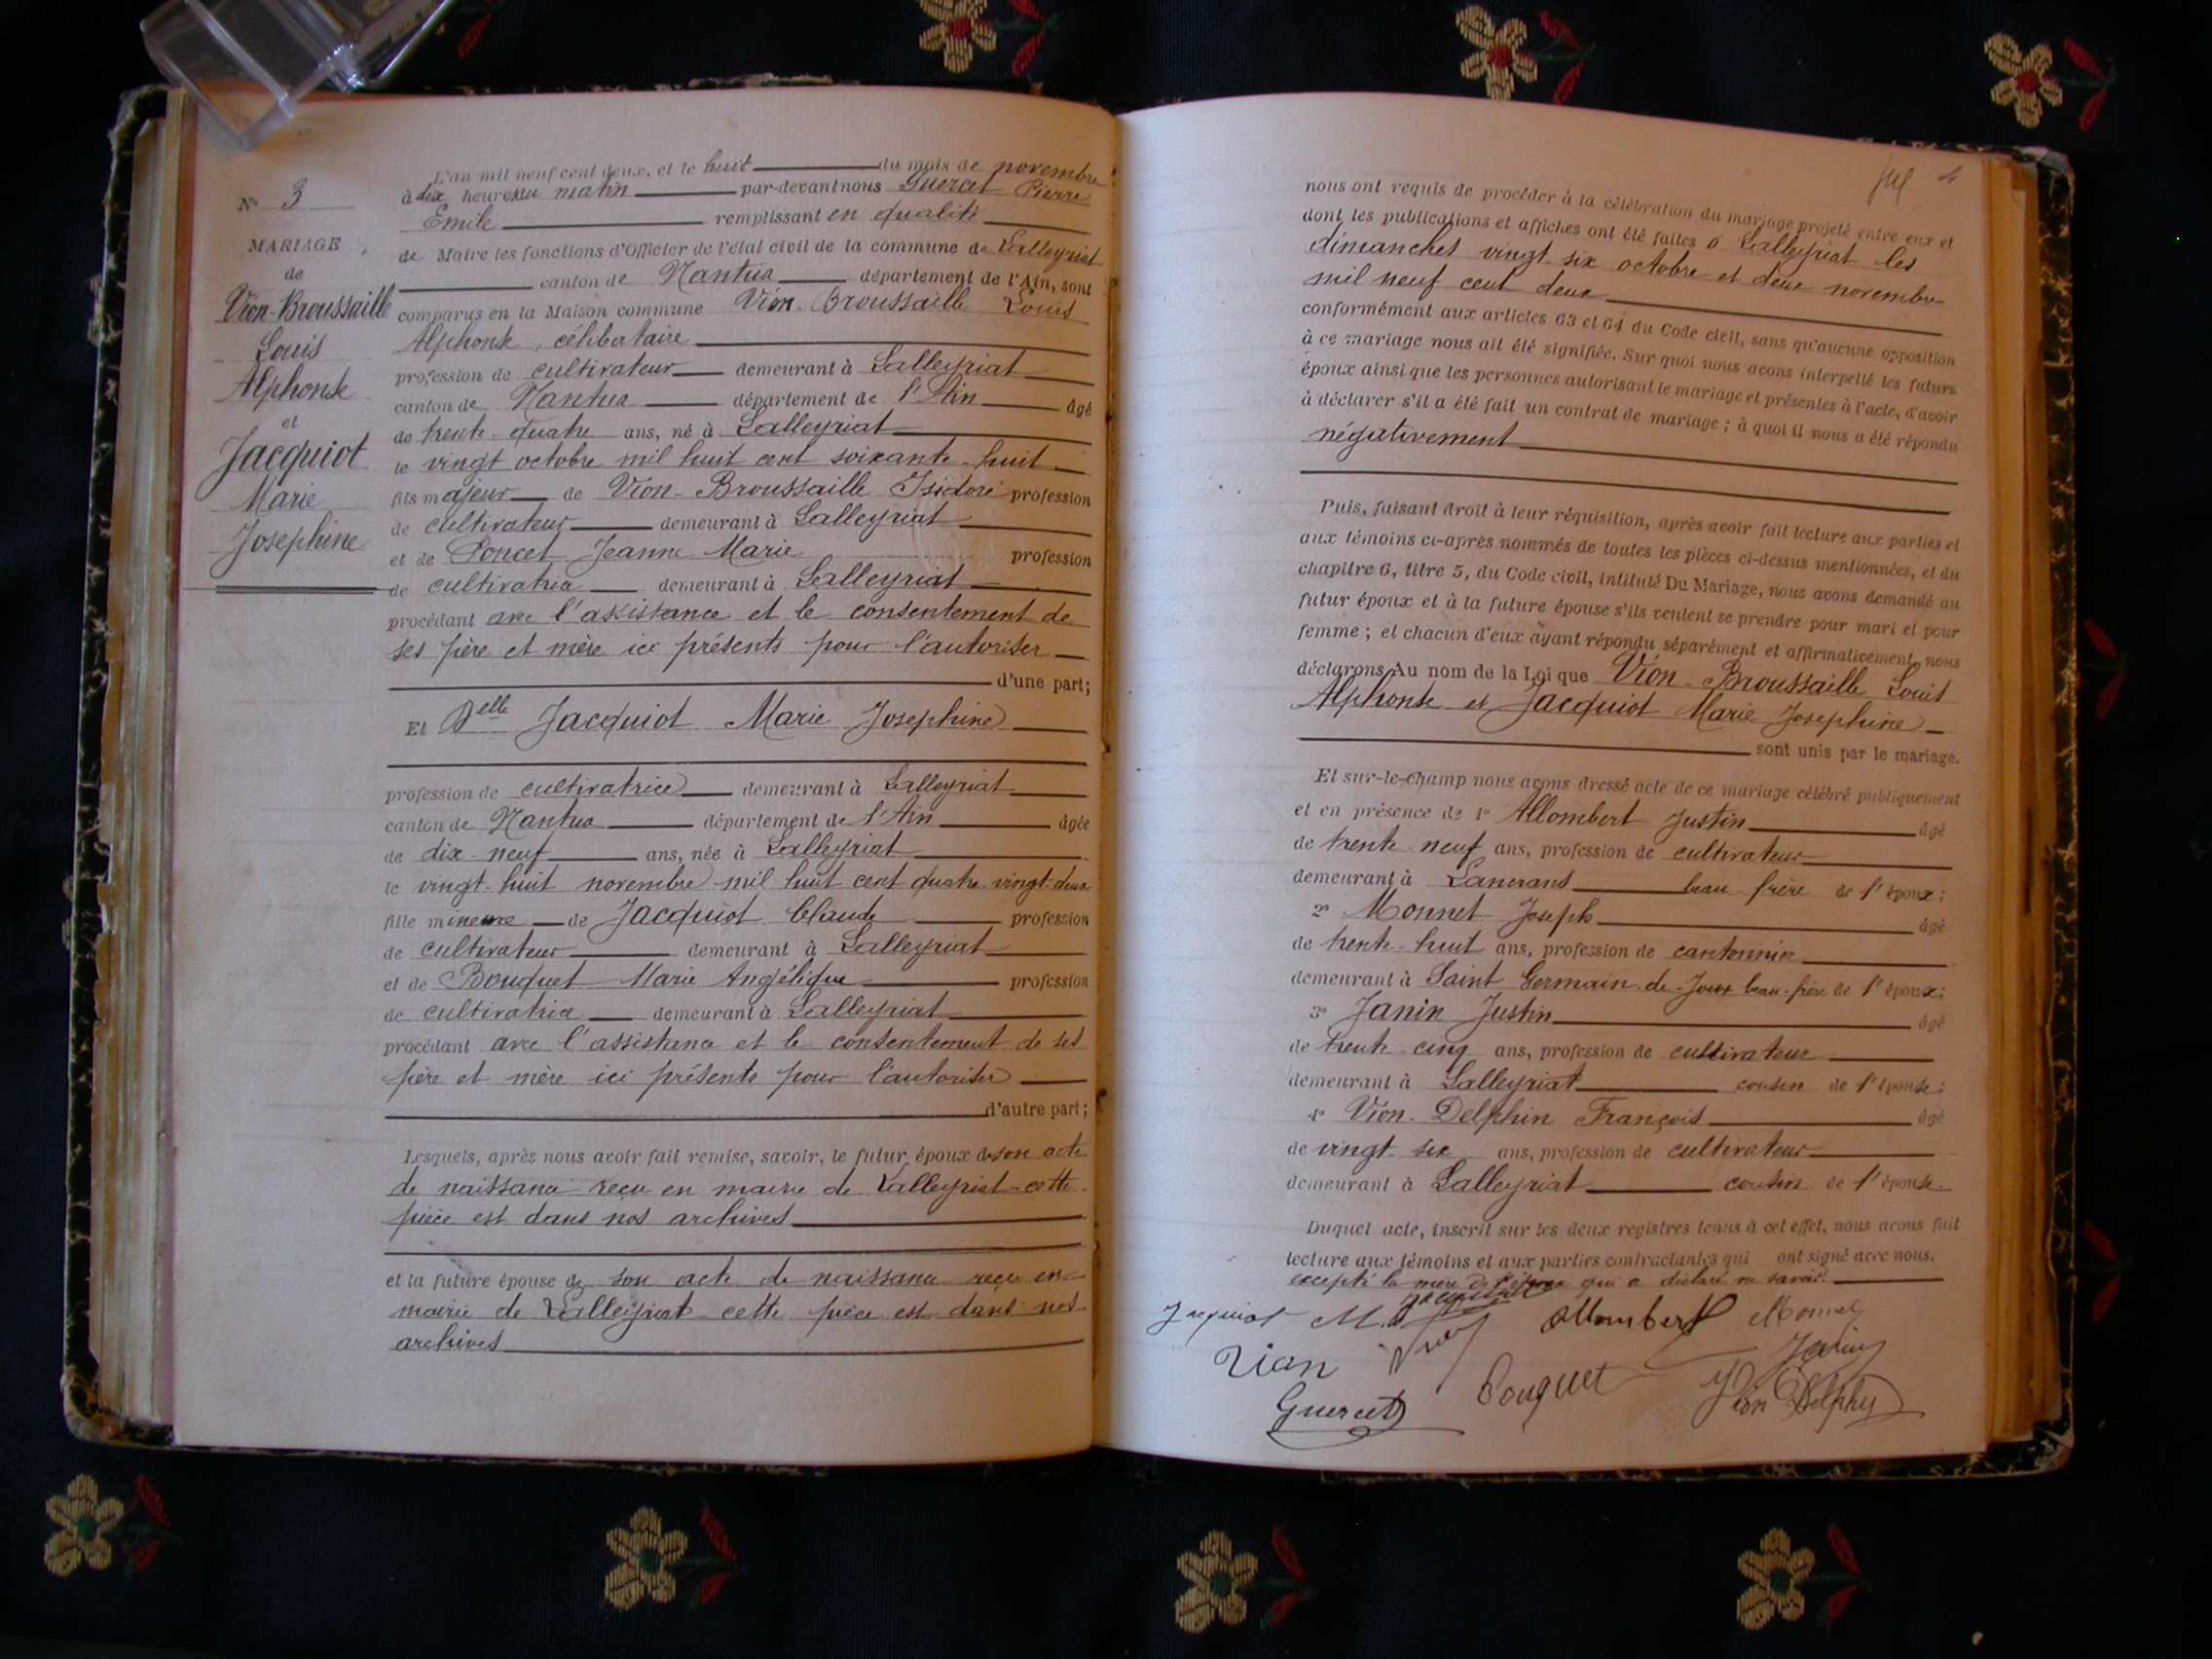 N° 3
MARIAGE
de
Vion-Broussaille
Louis
Alphonse
et
Jacquiot
Marie
Josephine
L'an mil neuf cent deux, et le huit du mois de novembre
à dix heures du matin par-devant nous Guercet Pierre
Emile remplissant en qualité
de Maire les fonctions d'Officier de l'état civil de la commune de Lalleyriat
canton de Nantua département de l'Ain, sont
comparus en la Maison commune Vion-Broussaille Louis
Alphonse, célibataire
profession de cultivateur demeurant à Lalleyriat
canton de Nantua département de l'Ain âgé
de trente-quatre ans, né à Lalleyriat
le vingt octobre mil huit cent soixante-huit
fils majeur de Vion-Broussaille Isidore profession
de cultivateur demeurant à Lalleyriat
et de Poncet Jeanne Marie profession
de cultivatrice demeurant à Lalleyriat
procédant avec l'assistance et le consentement de
ses père et mère ici présents pour l'autoriser
d'une part;
Et Delle Jacquiot Marie Josephine
profession de cultivatrice demeurant à Lalleyriat
canton de Nantua département de l'Ain âgée
de dix-neuf ans, née à Lalleyriat
le vingt-huit novembre mil huit cent quatre-vingt-deux
fille mineure de Jacquiot Claude profession
de cultivateur demeurant à Lalleyriat
et de Bouquet Marie Angélique profession
de cultivatrice demeurant à Lalleyriat
procédant avec l'assistance et le consentement de ses
père et mère ici présents pour l'autoriser
d'autre part;
Lesquels, après nous avoir fait remise, savoir, le futur époux de son acte
de naissance reçu en mairie de Lalleyriat cette
pièce est dans nos archives
et la future épouse de son acte de naissance reçu en
mairie de Lalleyriat cette pièce est dans nos
archives
4
nous ont requis de procéder à la célébration du mariage projeté entre eux et
dont les publications et affiches ont été faites à Lalleyriat les
dimanches vingt-six octobre et deux novembre
mil neuf cent deux
conformément aux articles 63 et 64 du Code civil, sans qu'aucune opposition
à ce mariage nous ait été signifiée. Sur quoi nous avons interpellé les futurs
époux ainsi que les personnes autorisant le mariage et présentes à l'acte, d'avoir
à déclarer s'il a été fait un contrat de mariage; à quoi il nous a été répondu
négativement
Puis, faisant droit à leur réquisition, après avoir fait lecture aux parties et
aux témoins ci-après nommés de toutes les pièces ci-dessus mentionnées, et du
chapitre 6, titre 5, du Code civil, intitulé Du Mariage, nous avons demandé au
futur époux et à la future épouse s'ils veulent se prendre pour mari et pour
femme; et chacun d'eux ayant répondu séparément et affirmativement, nous
déclarons Au nom de la Loi que Vion-Broussaille Louis
Alphonse et Jacquiot Marie Josephine
sont unis par le mariage.
Et sur-le-champ nous avons dressé acte de ce mariage célébré publiquement
et en présence de 1° Allombert Justin âgé
de trente-neuf ans, profession de cultivateur
demeurant à Lancrans beau-frère de l'époux;
2° Monnet Joseph âgé
de trente-huit ans, profession de cantonnier
demeurant à Saint Germain-de-Joux beau-frère de l'époux;
3° Janin Justin âgé
de trente-cinq ans, profession de cultivateur
demeurant à Lalleyriat cousin de l'épouse;
4° Vion-Delphin François âgé
de vingt-six ans, profession de cultivateur
demeurant à Lalleyriat cousin de l'épouse
Duquel acte, inscrit sur les deux registres tenus à cet effet, nous avons fait
lecture aux témoins et aux parties contractantes qui ont signé avec nous.
excepté la mère de l'époux qui a déclaré ne savoir.
Jacquiot M. Allombert Monnet
Vion Janin
Guercet Bouquet Vion Delphin